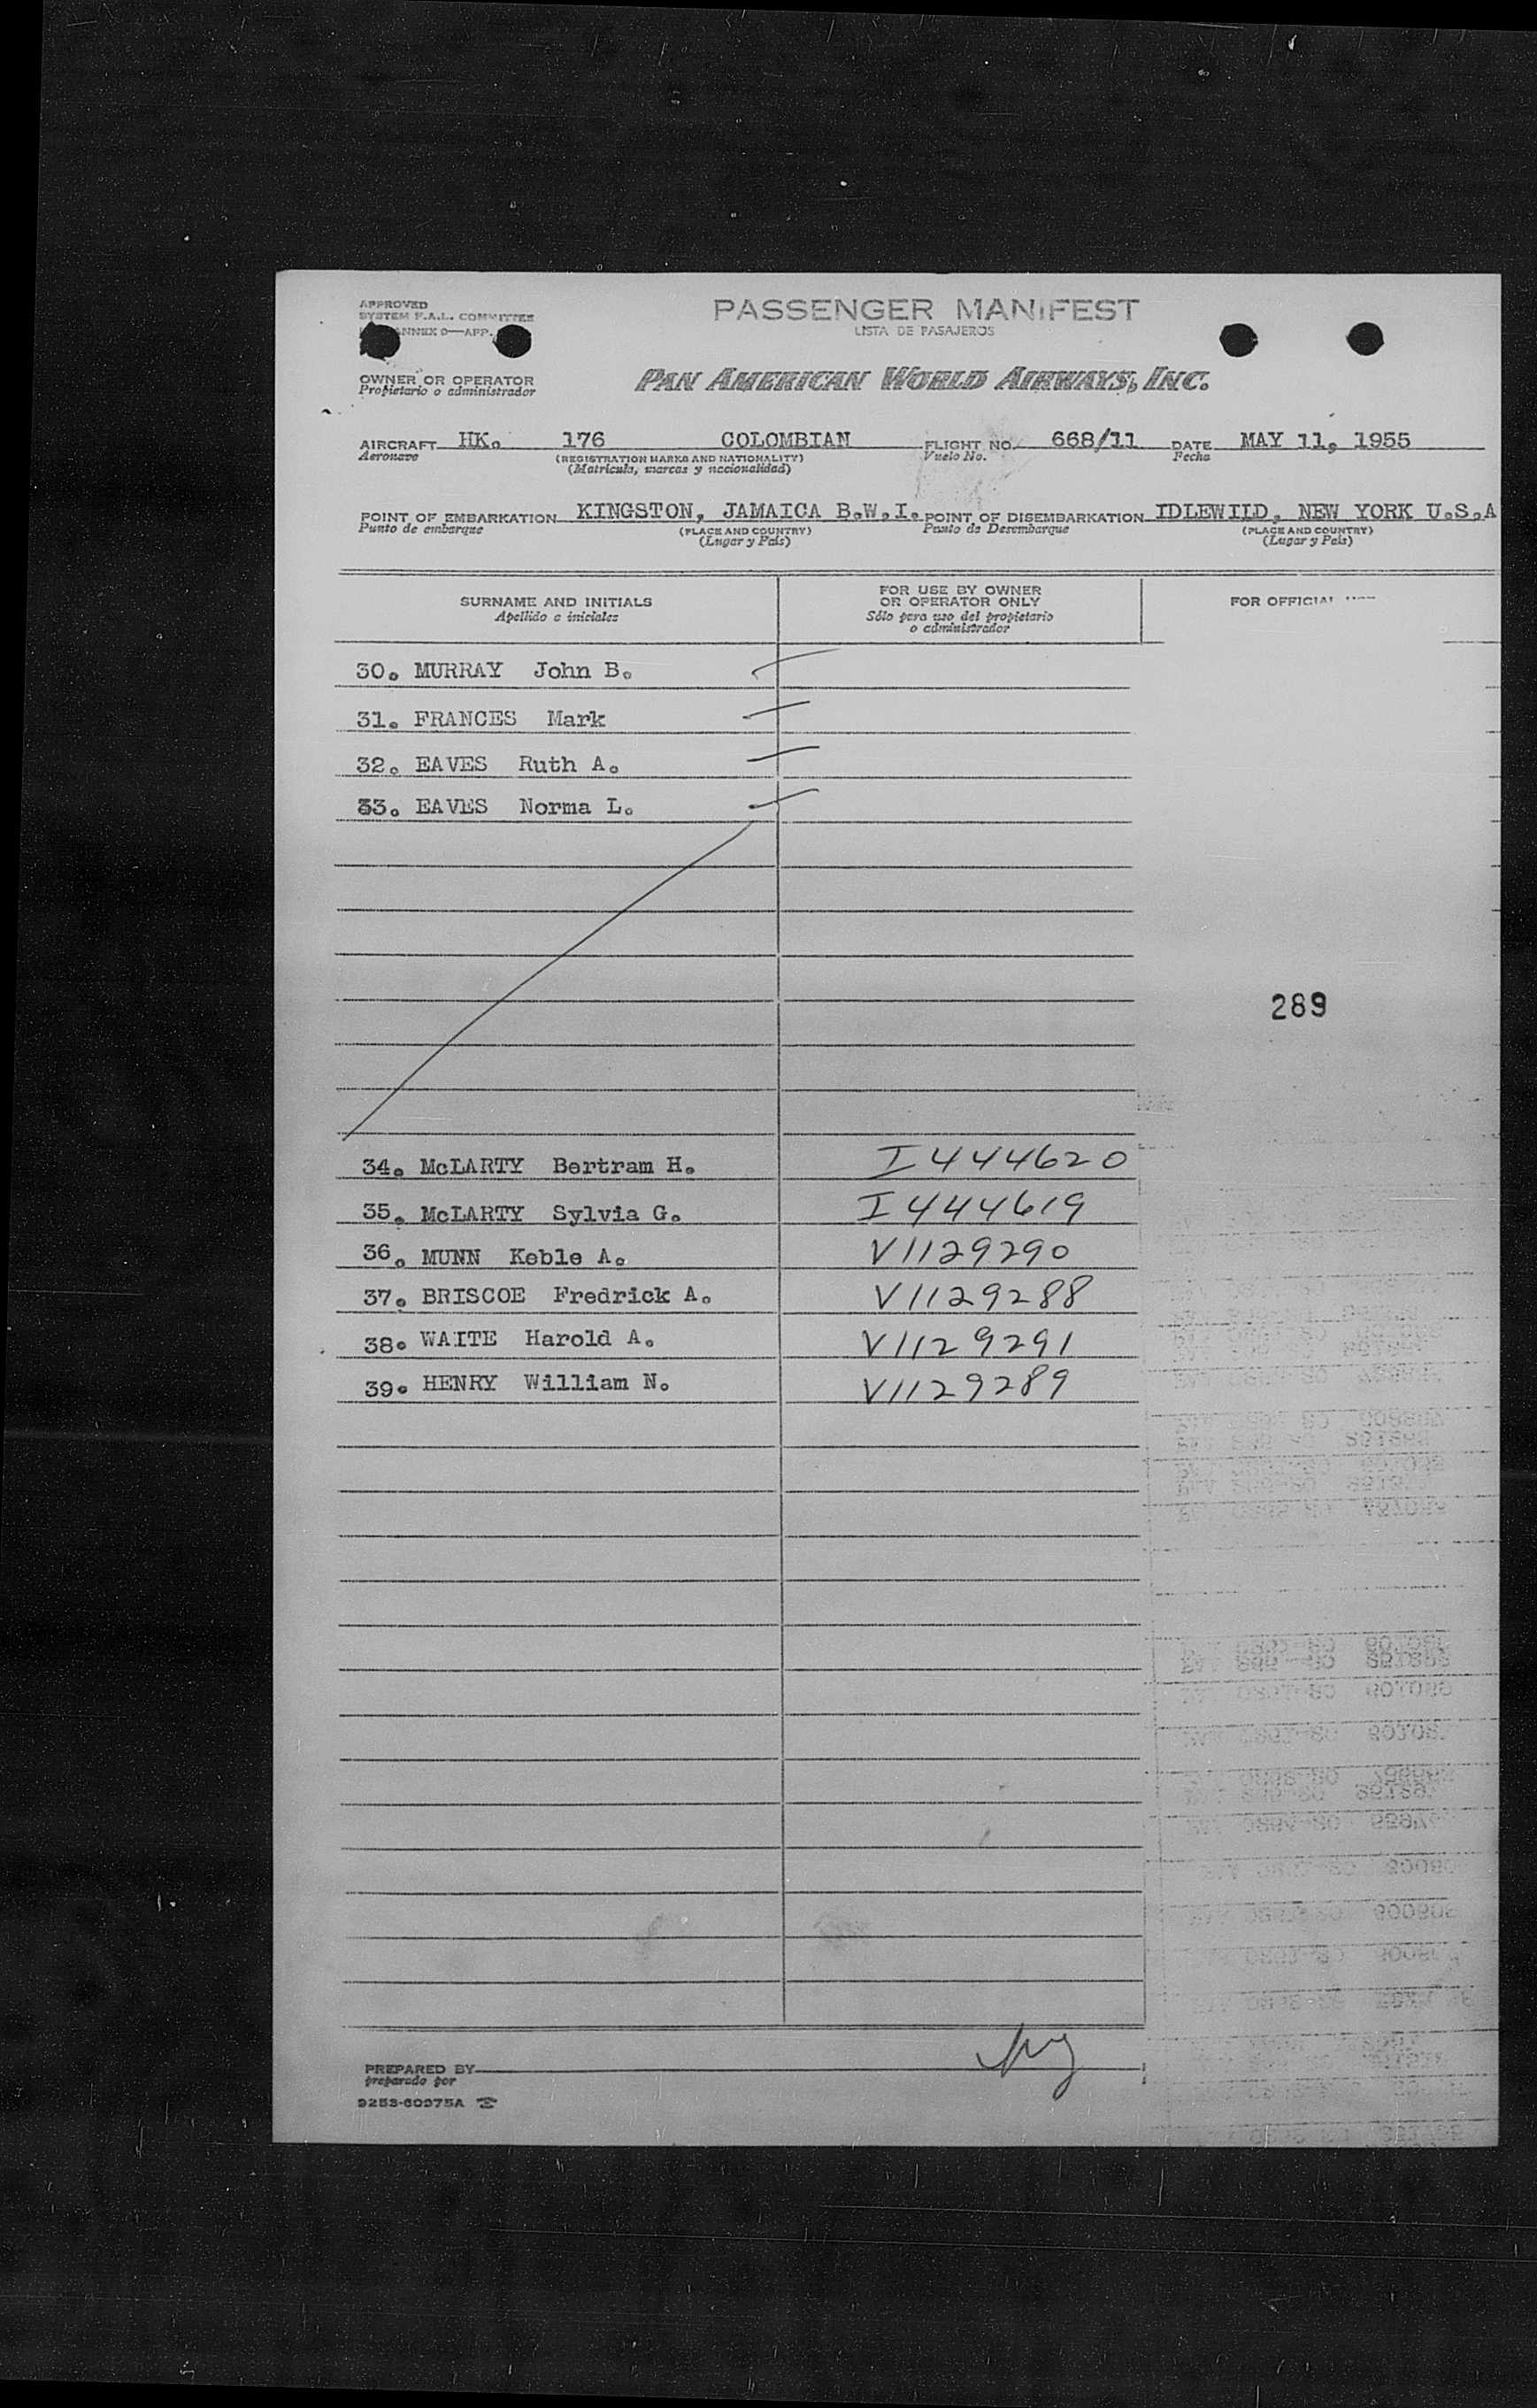 APPROVED
SYSTEM F.A.L. COMMITTEE
ANNEX 9—APP.
PASSENGER MANIFEST
LISTA DE PASAJEROS
OWNER OR OPERATOR
Propietario o administrador
PAN AMERICAN WORLD AIRWAYS, INC.
AIRCRAFT HK. 176 COLOMBIAN FLIGHT NO. 668/11 DATE MAY 11, 1955
Aeronave (REGISTRATION MARKS AND NATIONALITY) Vuelo No. Fecha
(Matrícula, marcas y nacionalidad)
POINT OF EMBARKATION KINGSTON, JAMAICA B.W.I. POINT OF DISEMBARKATION IDLEWILD, NEW YORK U.S.A
Punto de embarque (PLACE AND COUNTRY) Punto de Desembarque (PLACE AND COUNTRY)
(Lugar y País) (Lugar y País)
SURNAME AND INITIALS
Apellido e iniciales
FOR USE BY OWNER
OR OPERATOR ONLY
Sólo para uso del propietario
o administrador
FOR OFFICIAL
30. MURRAY John B.
31. FRANCES Mark
32. EAVES Ruth A.
33. EAVES Norma L.
289
34. McLARTY Bertram H. I444620
35. McLARTY Sylvia G. I444619
36. MUNN Keble A. V1129290
37. BRISCOE Fredrick A. V1129288
38. WAITE Harold A. V1129291
39. HENRY William N. V1129289
PREPARED BY
preparado por
9253-60975A